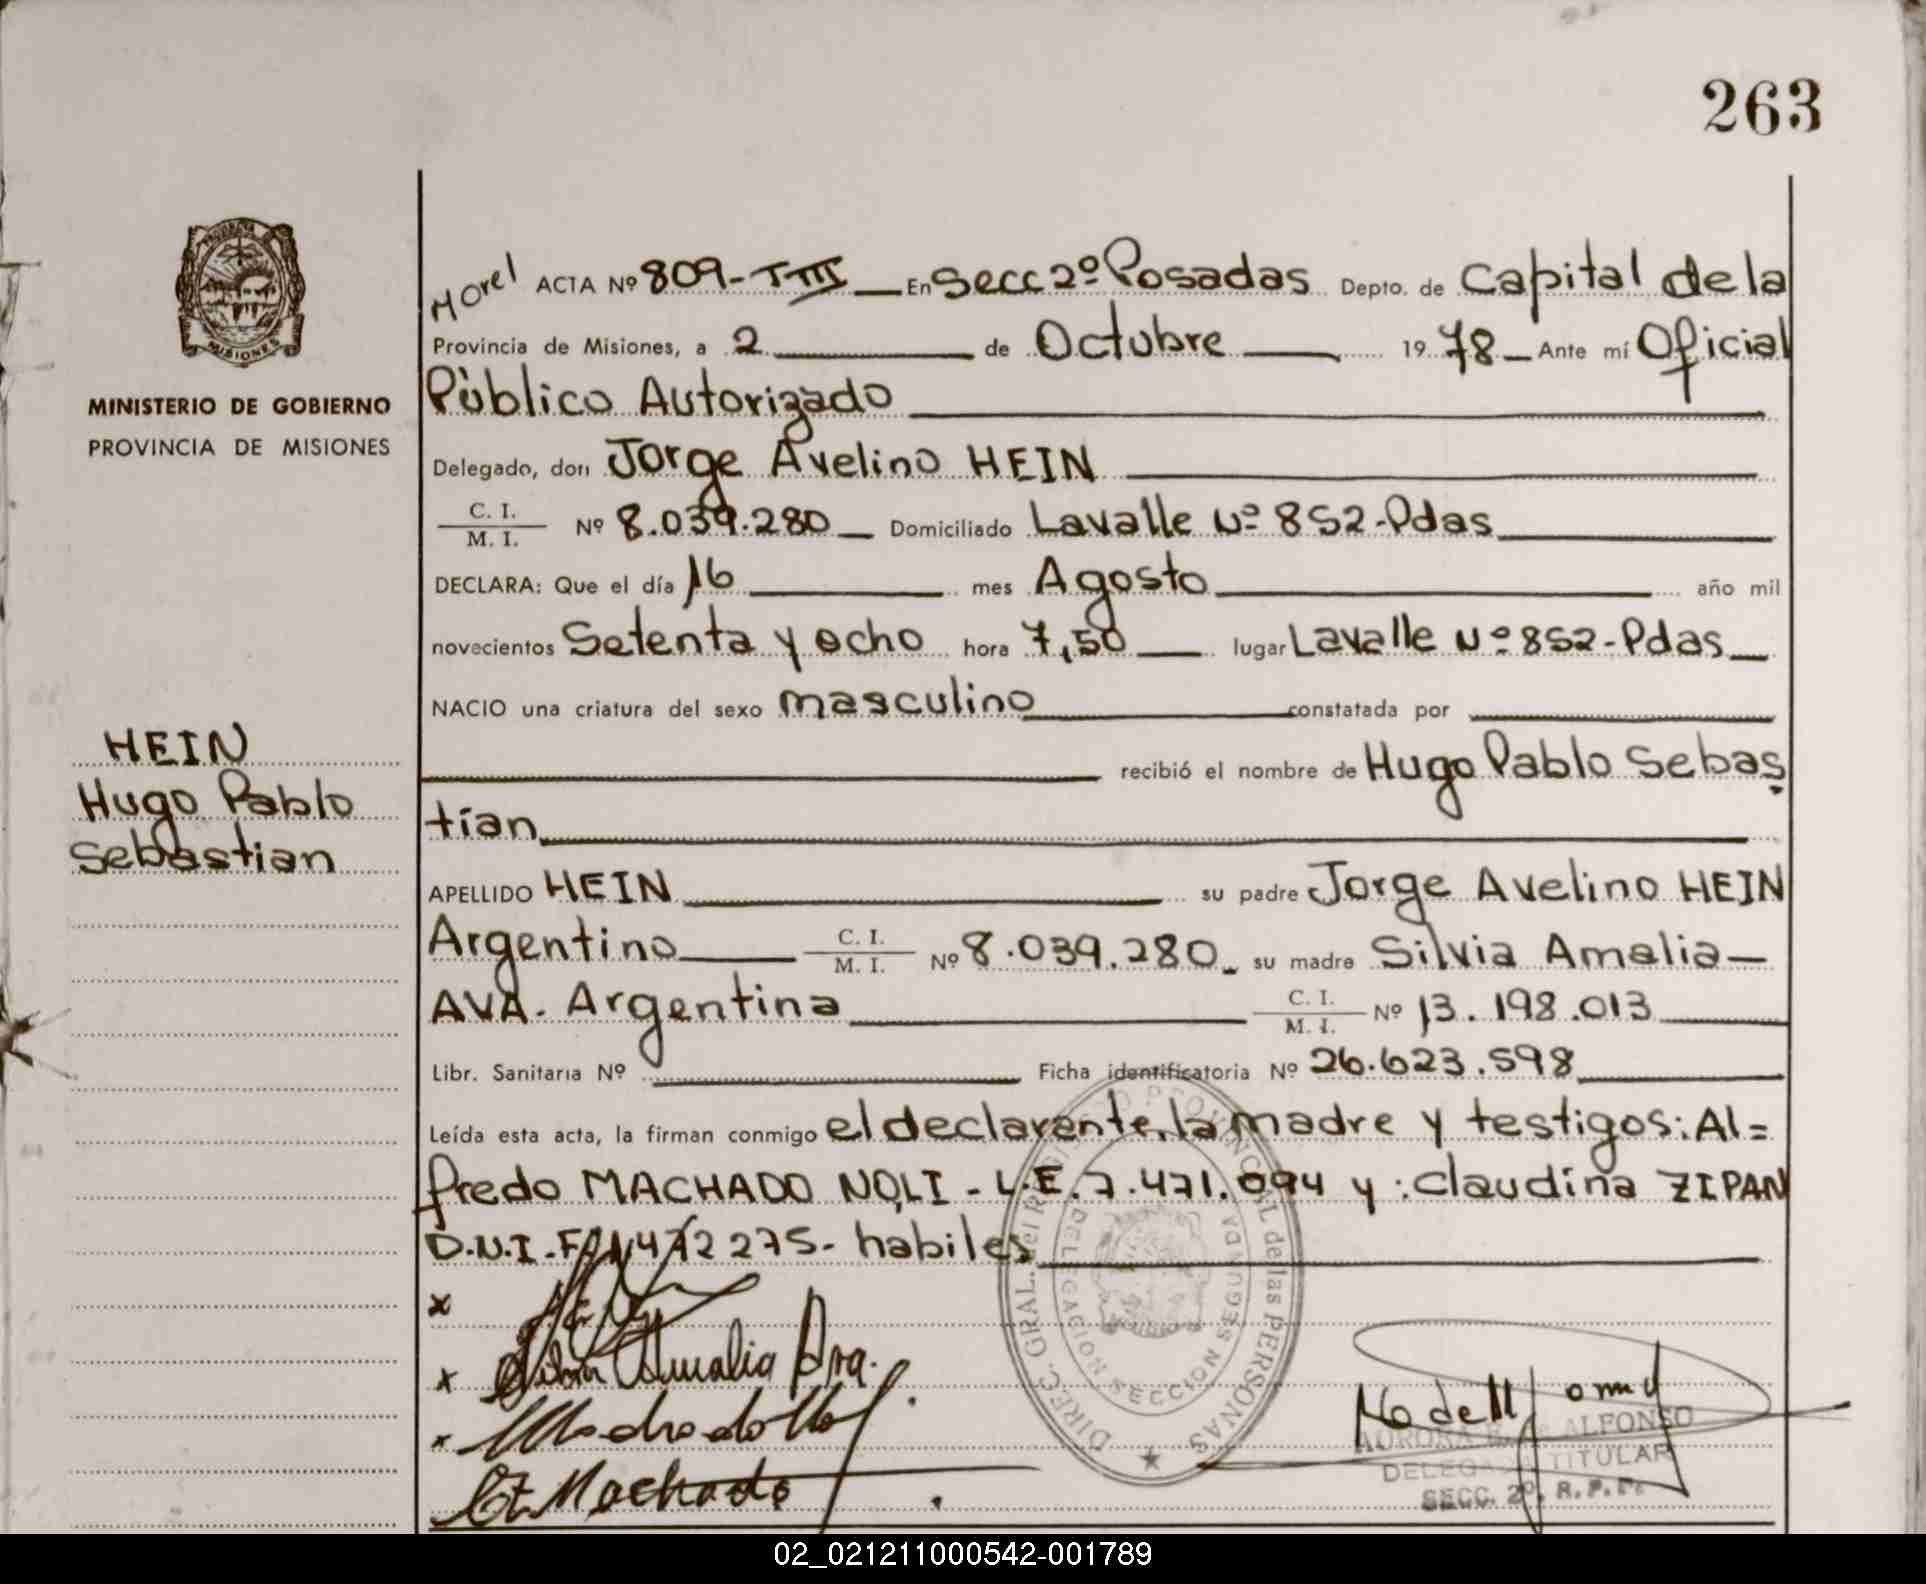 263
PROVINCIA DE
MISIONES
MINISTERIO DE GOBIERNO
PROVINCIA DE MISIONES
HEIN
Hugo Pablo
Sebastian
Morel ACTA Nº 809-TIII En Secc 2º Posadas Depto. de Capital de la
Provincia de Misiones, a 2 de Octubre 19 78 Ante mí Oficial
Público Autorizado
Delegado, don Jorge Avelino HEIN
C. I.
M. I. Nº 8.039.280 Domiciliado Lavalle Nº 852-Pdas
DECLARA: Que el día 16 mes Agosto año mil
novecientos Setenta y ocho hora 7,50 lugar Lavalle Nº 852-Pdas
NACIO una criatura del sexo masculino constatada por
recibió el nombre de Hugo Pablo Sebas
tían
APELLIDO HEIN su padre Jorge Avelino HEIN
Argentino C. I. M. I. Nº 8.039.280 su madre Silvia Amalia
AVA. Argentina C. I. M. I. Nº 13.198.013
Libr. Sanitaria Nº Ficha identificatoria Nº 26.623.598
Leída esta acta, la firman conmigo el declarante, la madre y testigos: Al=
fredo MACHADO NOLI - L.E. 7.471.094 y : Claudina ZIPAN
D.N.I. 275- habiles
x
x Silvia Amalia Ava.
x Machado
Machado
DIREC. GRAL. del REGISTRO PROVINCIAL de las PERSONAS
DELEGACION SECCION SEGUNDA
AURORA ALFONSO
DELEGADA TITULAR
SECC. 2º. R. P. P.
02_021211000542-001789